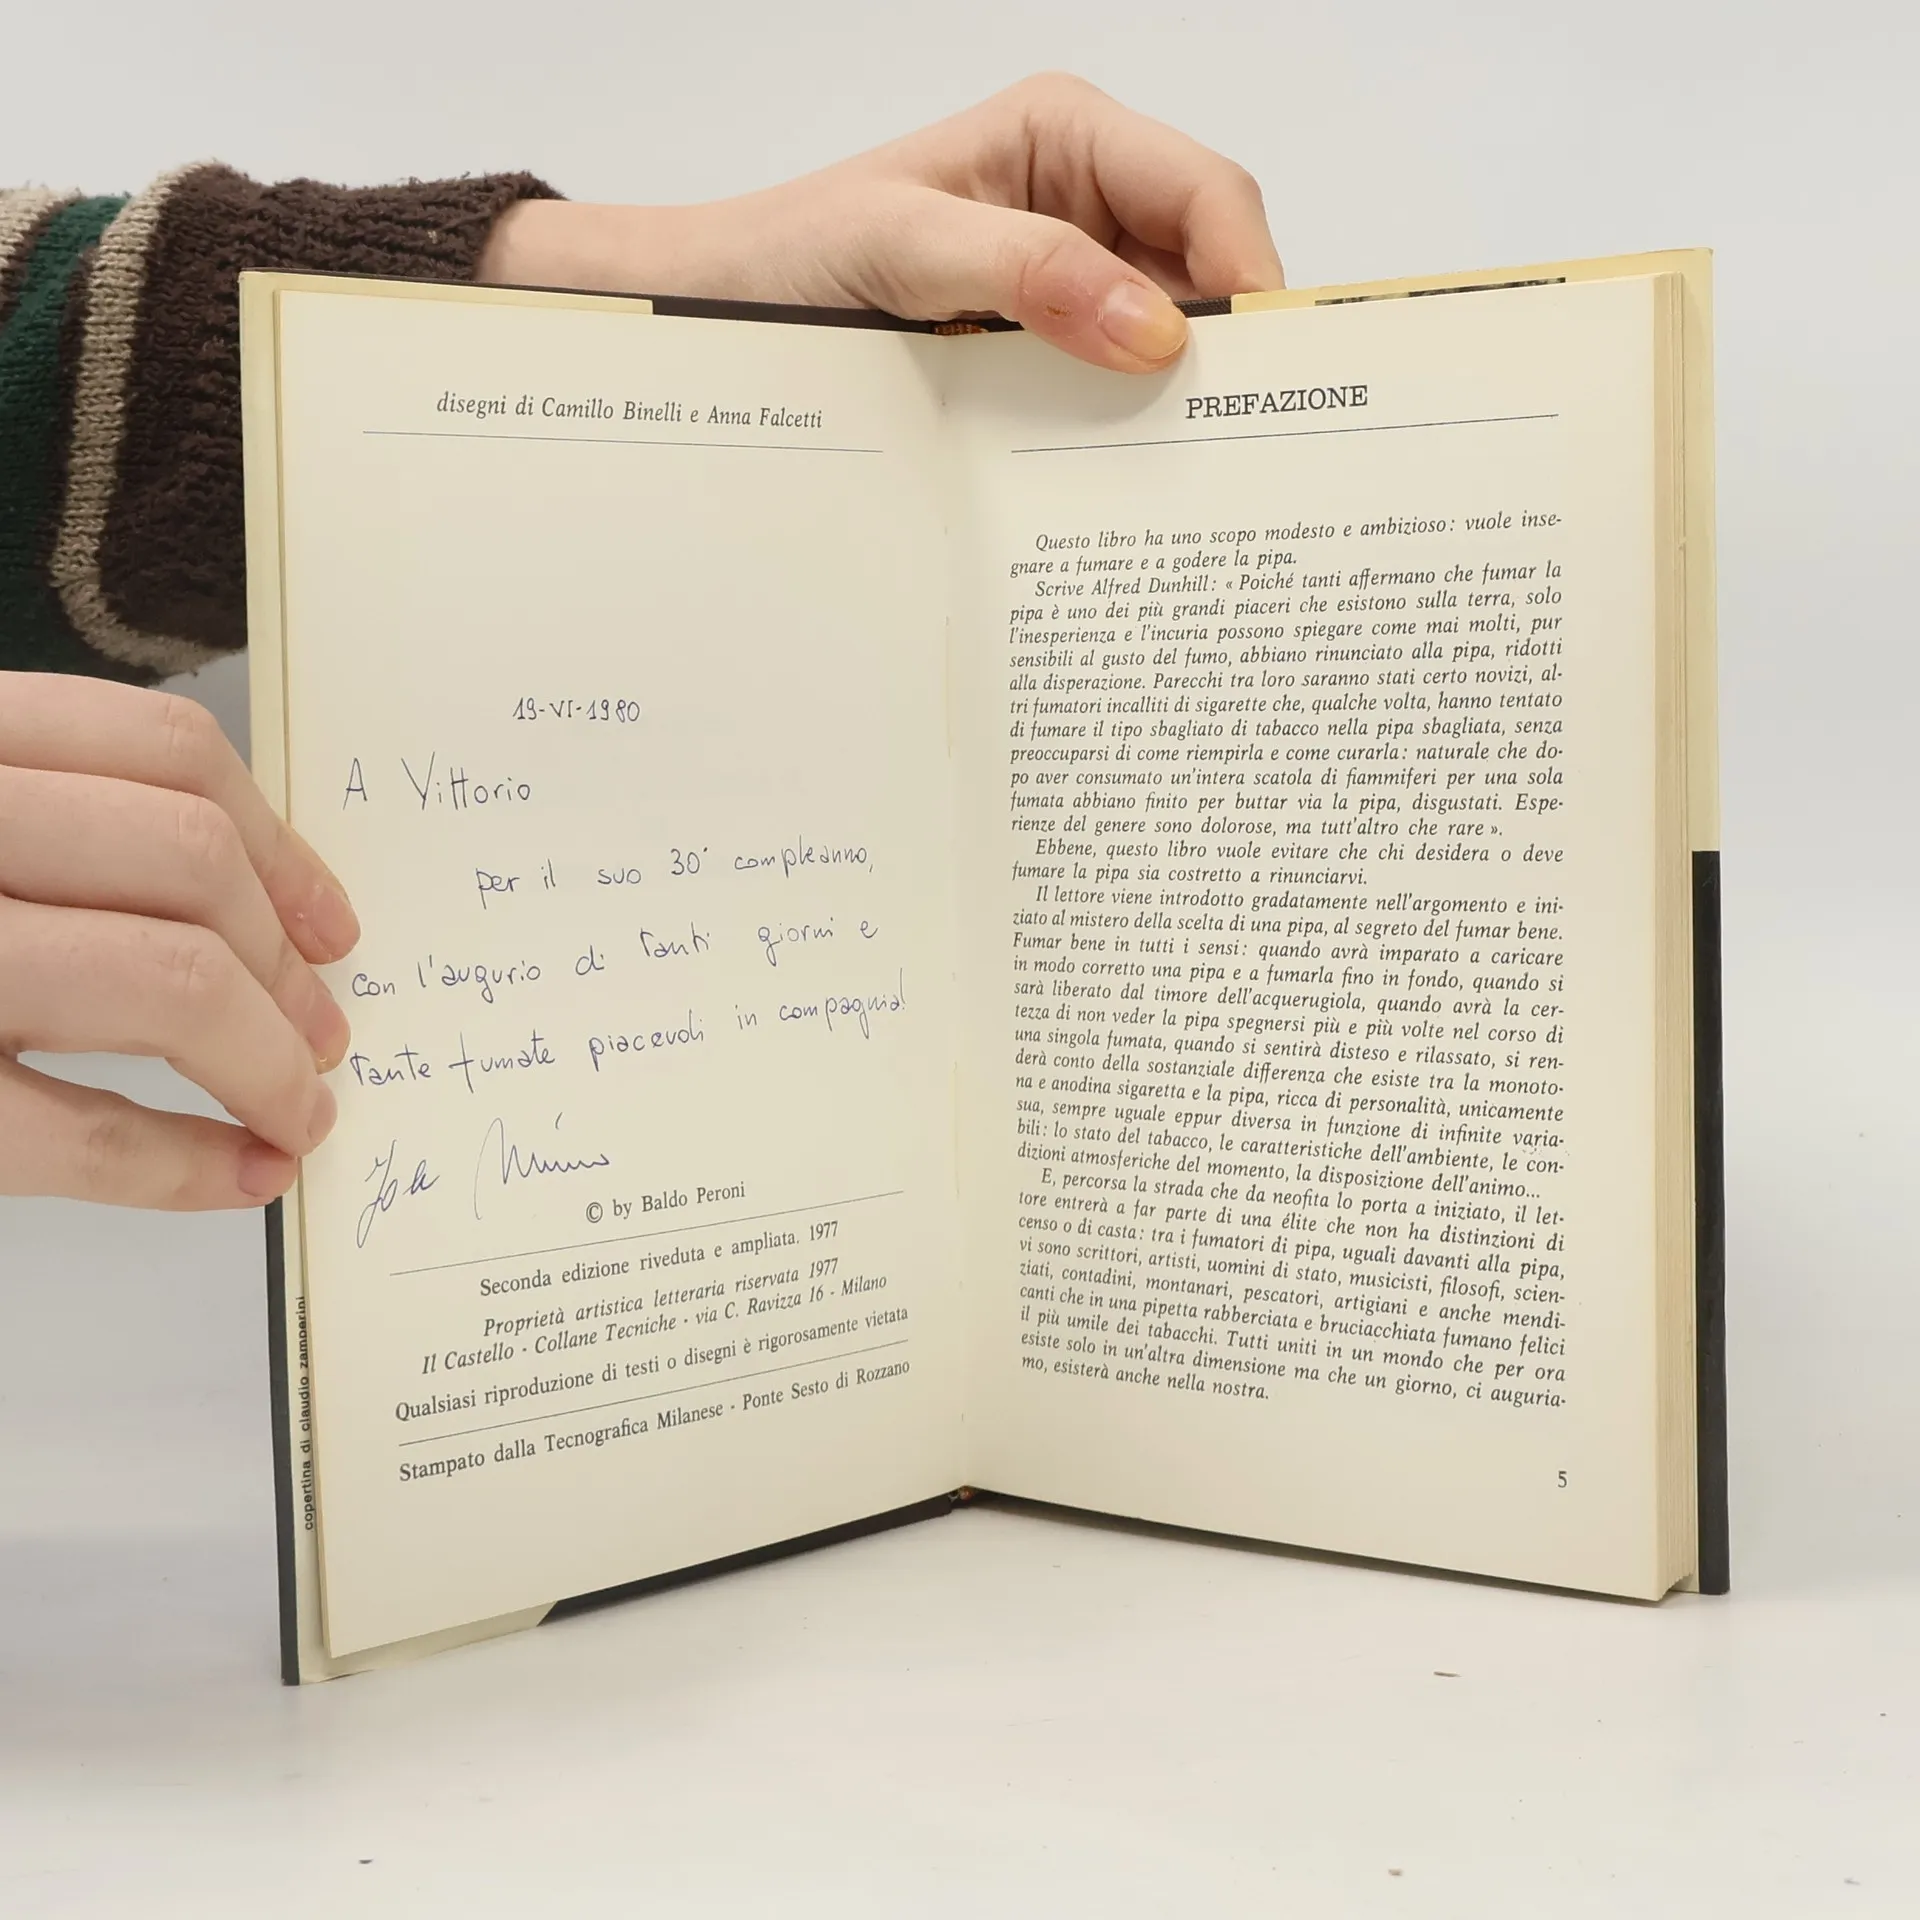 disegni di Camillo Binelli e Anna Falcetti
19-VI-1980
A Vittorio
per il suo 30° compleanno,
con l'augurio di tanti giorni e
tante fumate piacevoli in compagnia!
© by Baldo Peroni
Seconda edizione riveduta e ampliata. 1977
Proprietà artistica letteraria riservata 1977
Il Castello - Collane Tecniche - via C. Ravizza 16 - Milano
Qualsiasi riproduzione di testi o disegni è rigorosamente vietata
Stampato dalla Tecnografica Milanese - Ponte Sesto di Rozzano
copertina di claudio zamperini
PREFAZIONE
Questo libro ha uno scopo modesto e ambizioso: vuole inse-
gnare a fumare e a godere la pipa.
Scrive Alfred Dunhill: « Poiché tanti affermano che fumar la
pipa è uno dei più grandi piaceri che esistono sulla terra, solo
l'inesperienza e l'incuria possono spiegare come mai molti, pur
sensibili al gusto del fumo, abbiano rinunciato alla pipa, ridotti
alla disperazione. Parecchi tra loro saranno stati certo novizi, al-
tri fumatori incalliti di sigarette che, qualche volta, hanno tentato
di fumare il tipo sbagliato di tabacco nella pipa sbagliata, senza
preoccuparsi di come riempirla e come curarla: naturale che do-
po aver consumato un'intera scatola di fiammiferi per una sola
fumata abbiano finito per buttar via la pipa, disgustati. Espe-
rienze del genere sono dolorose, ma tutt'altro che rare ».
Ebbene, questo libro vuole evitare che chi desidera o deve
fumare la pipa sia costretto a rinunciarvi.
Il lettore viene introdotto gradatamente nell'argomento e ini-
ziato al mistero della scelta di una pipa, al segreto del fumar bene.
Fumar bene in tutti i sensi: quando avrà imparato a caricare
in modo corretto una pipa e a fumarla fino in fondo, quando si
sarà liberato dal timore dell'acquerugiola, quando avrà la cer-
tezza di non veder la pipa spegnersi più e più volte nel corso di
una singola fumata, quando si sentirà disteso e rilassato, si ren-
derà conto della sostanziale differenza che esiste tra la monoto-
na e anodina sigaretta e la pipa, ricca di personalità, unicamente
sua, sempre uguale eppur diversa in funzione di infinite varia-
bili: lo stato del tabacco, le caratteristiche dell'ambiente, le con-
dizioni atmosferiche del momento, la disposizione dell'animo...
E, percorsa la strada che da neofita lo porta a iniziato, il let-
tore entrerà a far parte di una élite che non ha distinzioni di
censo o di casta: tra i fumatori di pipa, uguali davanti alla pipa,
vi sono scrittori, artisti, uomini di stato, musicisti, filosofi, scien-
ziati, contadini, montanari, pescatori, artigiani e anche mendi-
canti che in una pipetta rabberciata e bruciacchiata fumano felici
il più umile dei tabacchi. Tutti uniti in un mondo che per ora
esiste solo in un'altra dimensione ma che un giorno, ci auguria-
mo, esisterà anche nella nostra.
5